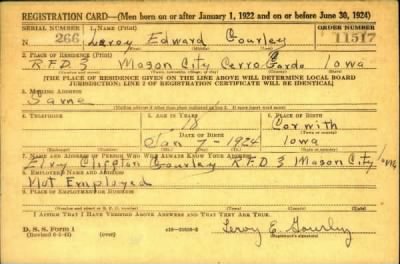 REGISTRATION CARD—(Men born on or after January 1, 1922 and on or before June 30, 1924)
SERIAL NUMBER
1. NAME (Print)
ORDER NUMBER
N 266 Leroy Edward Gourley 11517
2. PLACE OF RESIDENCE (Print)
R.F.D. 3 Mason City Cerro Gordo Iowa
[THE PLACE OF RESIDENCE GIVEN ON THE LINE ABOVE WILL DETERMINE LOCAL BOARD
JURISDICTION; LINE 2 OF REGISTRATION CERTIFICATE WILL BE IDENTICAL]
3. MAILING ADDRESS
Same
4. TELEPHONE
5. AGE IN YEARS
6. PLACE OF BIRTH
18
Corwith
DATE OF BIRTH
Jan 7 - 1924
Iowa
7. NAME AND ADDRESS OF PERSON WHO WILL ALWAYS KNOW YOUR ADDRESS
Clifton Gourley R.F.D 3 Mason City Iowa
8. EMPLOYER'S NAME AND ADDRESS
Not Employed
9. PLACE OF EMPLOYMENT OR BUSINESS
I AFFIRM THAT I HAVE VERIFIED ABOVE ANSWERS AND THAT THEY ARE TRUE.
D. S. S. Form 1
Leroy E. Gourley
(Registrant's signature)